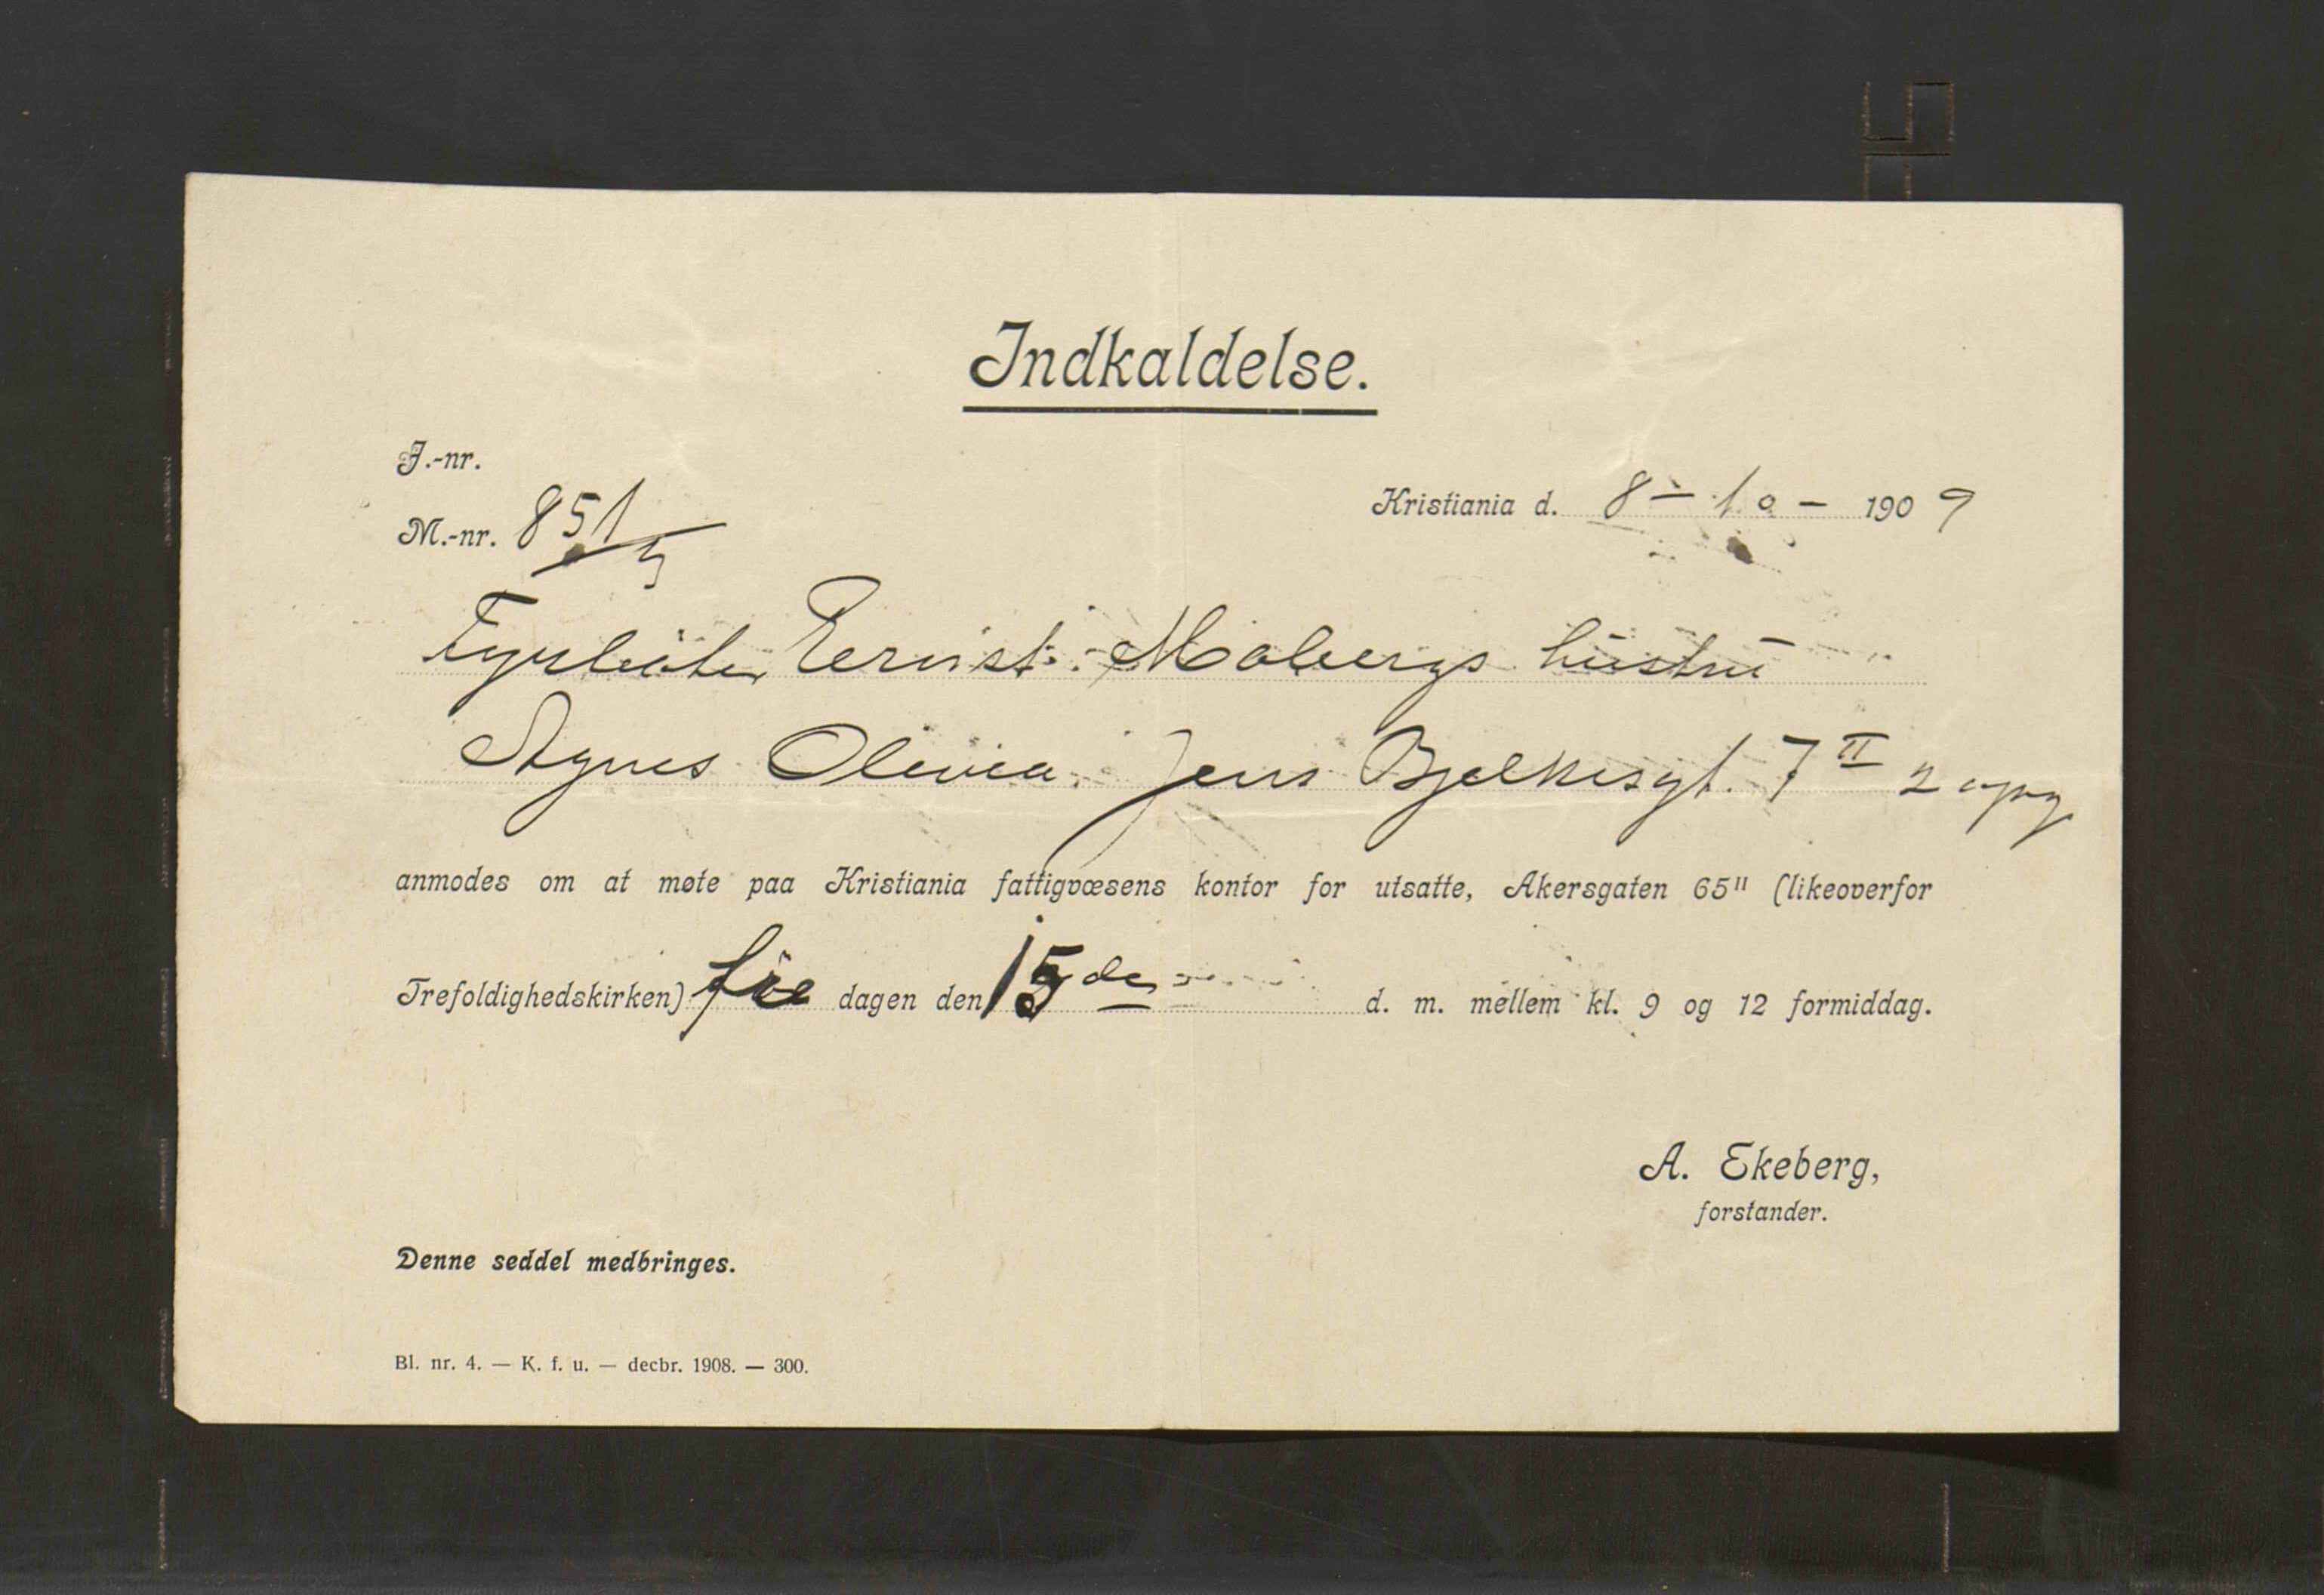 Indkaldelse.
J.-nr.
M.-nr. 851/5
Kristiania d. 8 - 10 - 1909
Fyrbøter Ernst Mobergs hustru
Agnes Olivia. Jens Bjelkesgt. 7 II 2 opg
anmodes om at møte paa Kristiania fattigvæsens kontor for utsatte, Akersgaten 65II (likeoverfor
Trefoldighedskirken) fre dagen den 15de d. m. mellem kl. 9 og 12 formiddag.
A. Ekeberg,
forstander.
Denne seddel medbringes.
Bl. nr. 4. — K. f. u. — decbr. 1908. — 300.